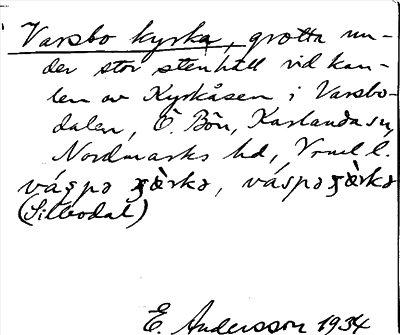 Varsbo kyrka, grotta un-
der stor stenhäll vid kan-
ten av Kyrkåsen i Varsbo-
dalen, Ö. Bön, Karlanda sn,
Nordmarks hd, Vrml l.
váspə ɟærkə, váspəɟærkə
(Sillbodal)
E. Andersson 1934